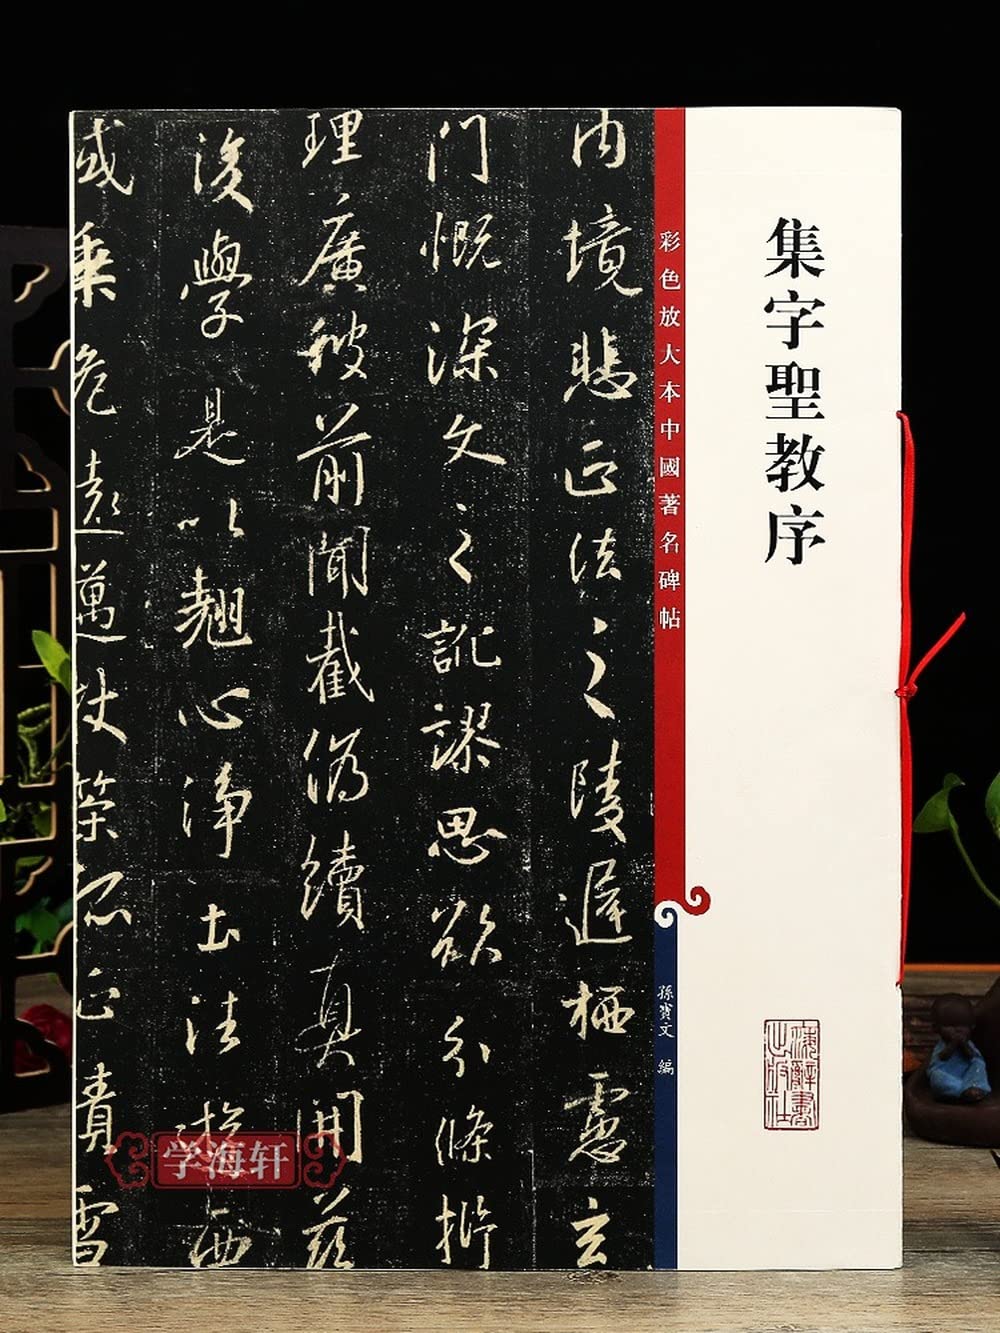 集字聖教序
彩色放大本中國著名碑帖
孫寶文 編
上海辭書
出版社
內境悲正法之陵遲栖慮玄
門慨深文之訛謬思欲分條析
理廣彼前聞截偽續真開茲
後學是以翹心淨土往遊西
域乘危遠邁杖策孤征積雪
学海轩